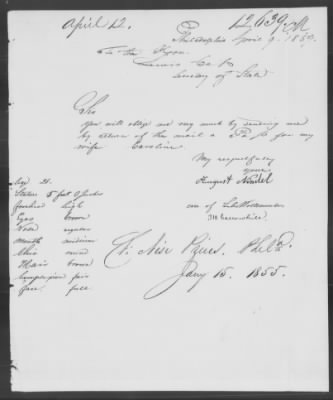 April 12. 12.639.
Philadelphia April 9. 1859.
To the Hon.
Lewis Cass
Secretary of State
Sir
You will oblige me very much by sending me
by return of the mail a for my
wife Caroline.
Very respectfully
yours
August
care of
Age 21.
Stature 5 feet 9 Inches
forehead high
Eyes brown
Nose regular
Mouth medium
Chin round
Hair brown
Complexion fair
face full
Philad.
Jany 15. 1855.